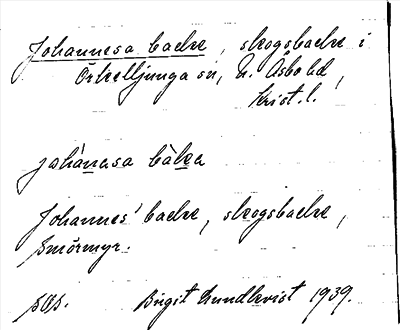 Johannesa backe, skogsbacke i
Örkelljunga sn, N. Åsbo hd,
Krist. l.
johánasa bàka
Johannes' backe, skogsbacke,
Smörmyr.
Birgit Lundkvist 1939.